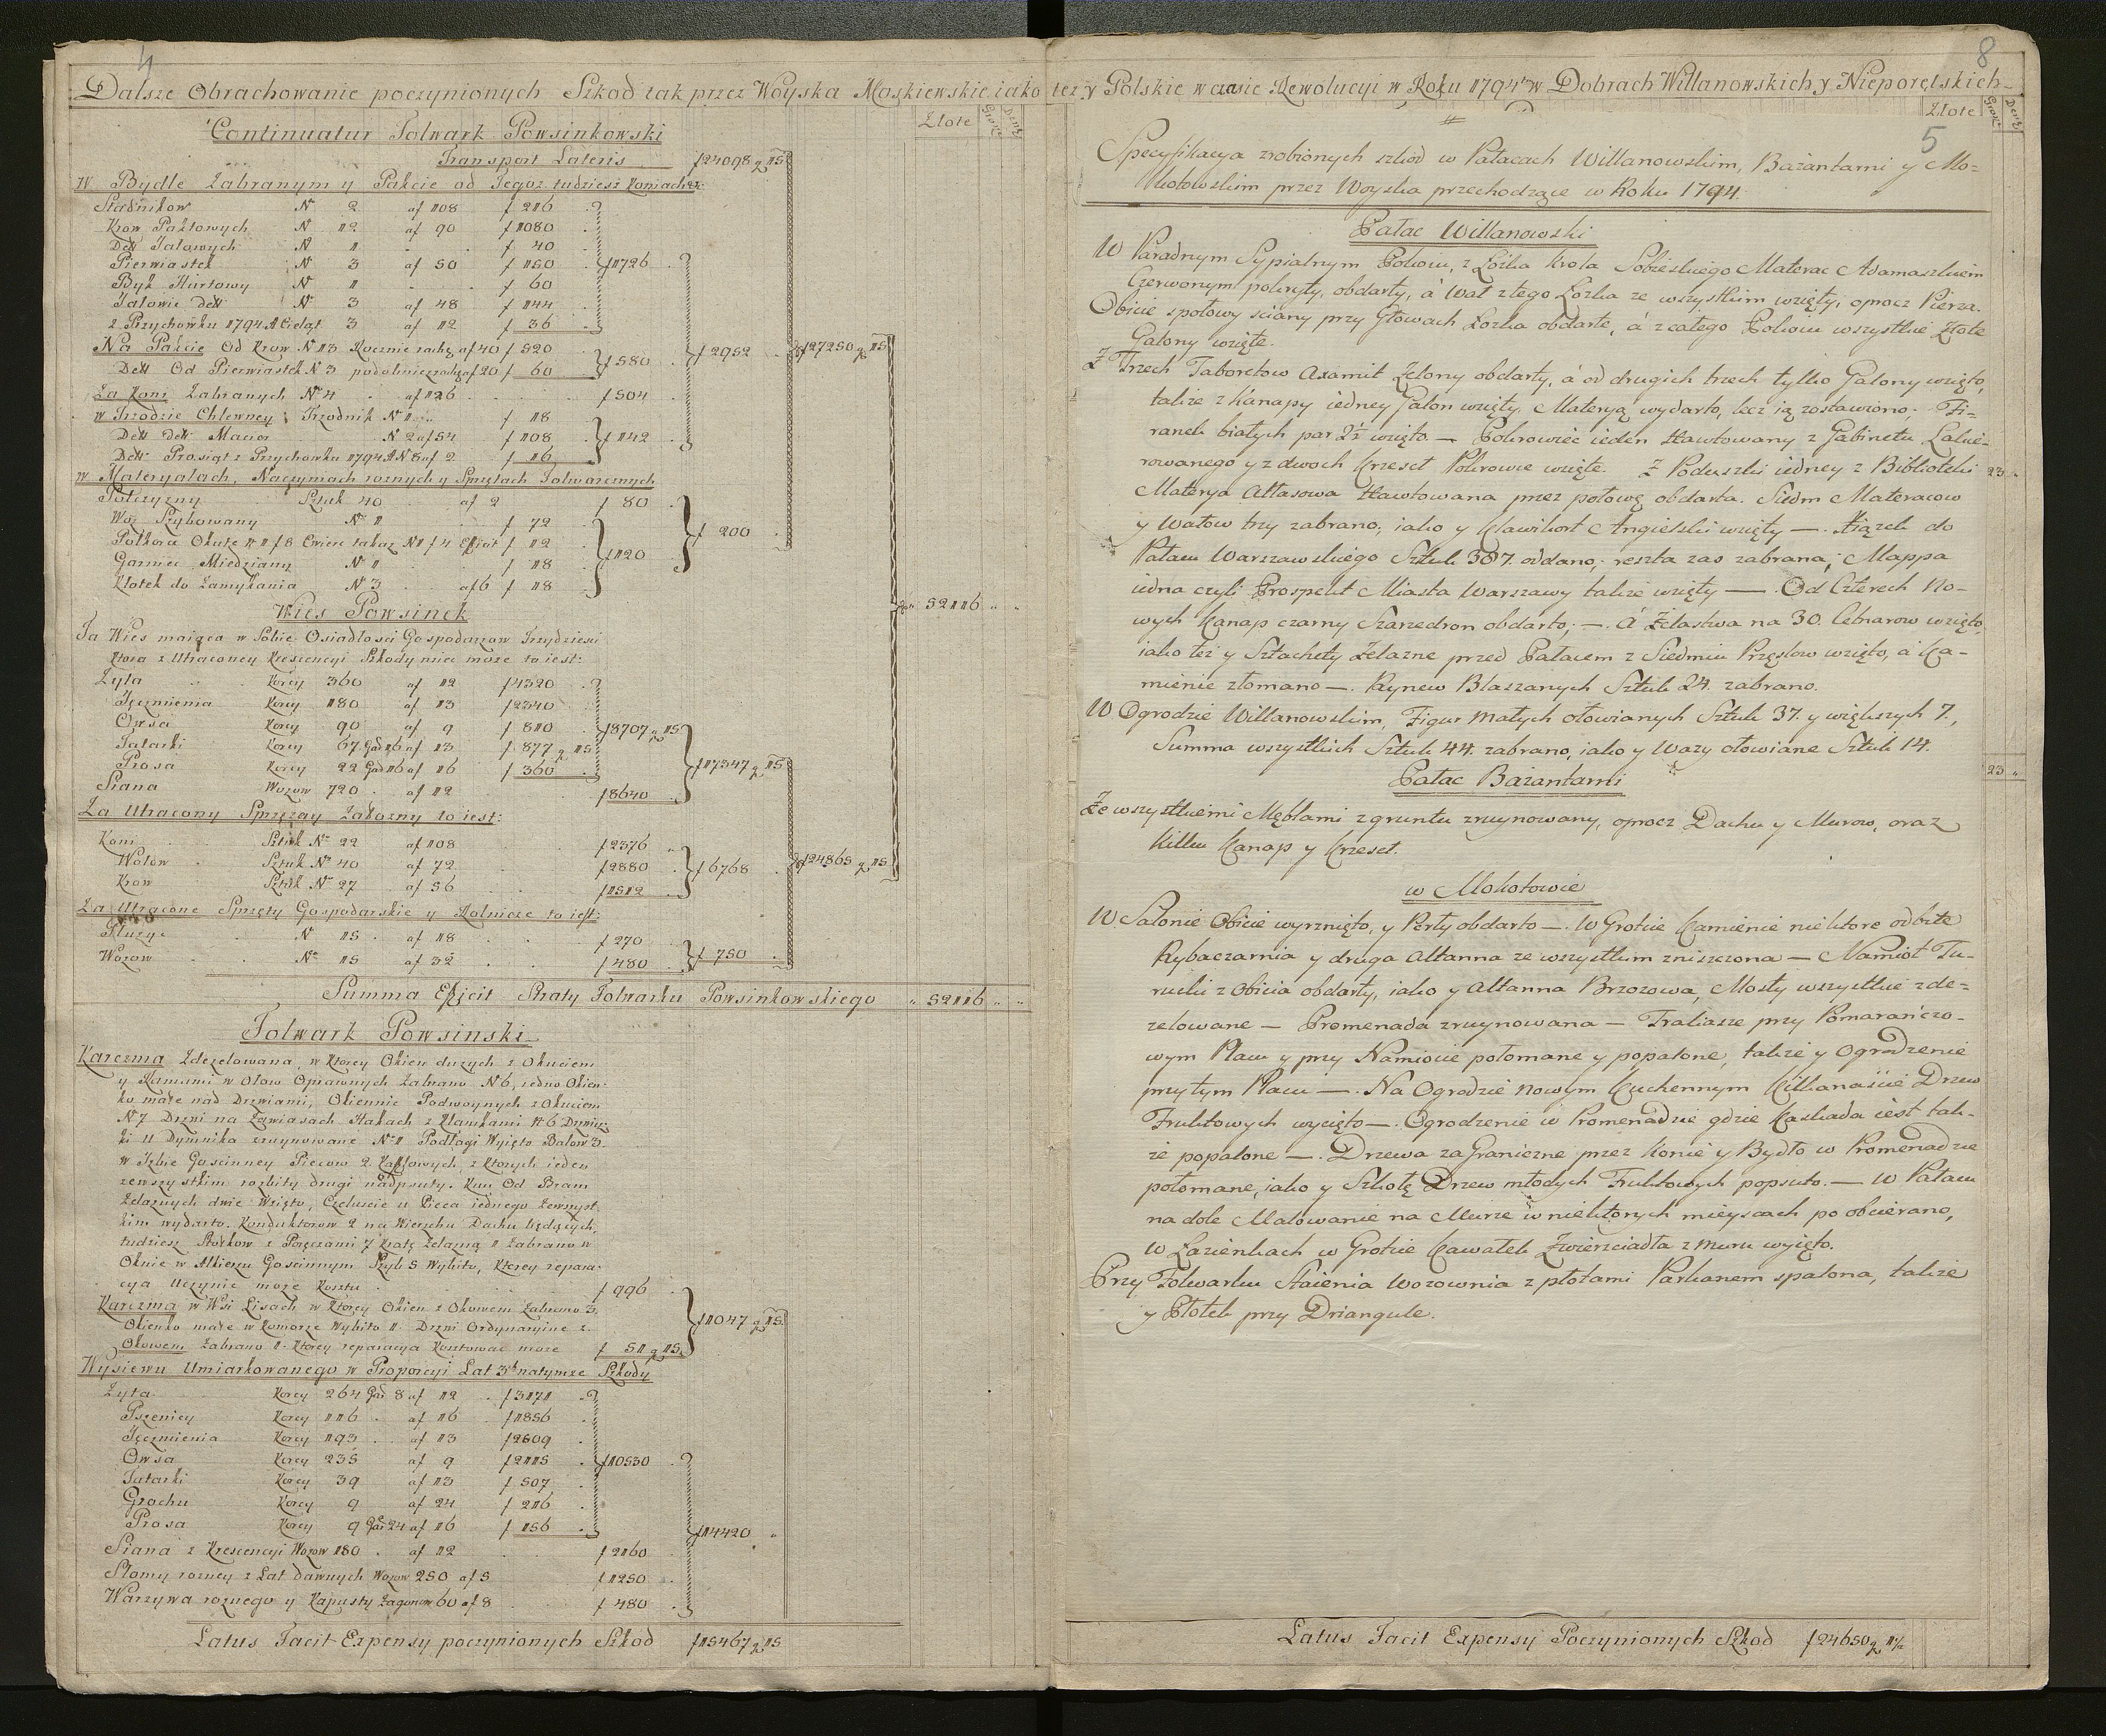 4
8
Dalsze Obrachowanie poczynionych Szkod tak przez Woyska Maskiewskie iako tez y Polskie w czasie Rewolucyi w Roku 1794 w Dobrach Willanowskich y Nieporętskich
Złote Grosz Den:
Continuatur Folwark Powsinkowski
Transport Lateris f 24098 g 15
W Bydle Zabranym y Pakcie od Tegoz tudziesz Koniach
Stadnikow N 2 af 108 f 216
Krow Paktowych N 12 af 90 f 1080
Dett Jałowych N 1 f 40
Pierwiastek N 3 af 50 f 150 f 1726
Byk Hurtowy N 1 f 60
Jałowic Dett N 3 af 48 f 144
z Przychowku 1794 A Cieląt 3 af 12 f 36
Na Pakcie Od Krow N 13 Rocznie rachz af 40 f 520
Dett Od Pierwiastek N 3 podobniez rachz af 20 f 60 f 580 f 2952 f 27250 g 15
Za Koni Zabranych N 4 af 126 f 504
w Trzodzie Chlewney Trzodnik N 1 f 18
Dett Dett Macior N 2 af 54 f 108 f 142
Dett Prosiąt z Przychowku 1794 A N 8 af 2 f 16
w Materyałach, Naczyniach roznych y Sprzętach Folwarcznych
Potczyzny Sztuk 40 af 2 f 80
Woz Szybowany N 1 f 72 f 200
Połkora Okute N 1 f 8 Cwierc takaz N 1 f 4 Efficit f 12
Garniec Miedziany N 1 f 18 f 120
Kłotek do Zamykania N 3 af 6 f 18
Wies Powsinek 52116
Ta Wies maiąca w Sobie Osiadłosci Gospodarzow Trzydziesci
ktora z Utraconey Krescencyi Szkody miec moze to iest:
Zyta Korcy 360 af 12 f 4320
Jęczmienia Korcy 180 af 13 f 2340
Owsa Korcy 90 af 9 f 810 f 8707 g 15
Tatarki Korcy 67 Gar 16 af 13 f 877 g 15
Prosa Korcy 22 Gar 16 af 16 f 360 f 17347 g 15
Siana Wozow 720 af 12 f 8640
Za Utracony Sprzęzay Załozny to iest:
Koni Sztuk N 22 af 108 f 2376
Wołow Sztuk N 40 af 72 f 2880 f 6768 f 24865 g 15
Krow Sztuk N 27 af 56 f 1512
Za Utracone Sprzęty Gospodarskie y Rolnicze to iest:
Pługow N 15 af 18 f 270
Wozow N 15 af 32 f 480 f 750
Summa Efficit Straty Folwarku Powsinkowskiego 52116
Folwark Powsinski
Karczma Zdezelowana, w ktorey Okien duzych z Okuciem
y Ramami w Ołow Oprawnych Zabrano N 6, iedno Okien-
ko małe nad Drzwiami, Okiennic Podwoynych z Okuciem
N 7 Drzwi na Zawiasach Hakach z Klamkami N 6 Drzwicz-
ki u Dymnika zruynowane N 1 Podłagi Wyięto Balow 3.
w Izbie Goscinney Piecow 2 Kaflowych, z ktorych ieden
zewszystkim rozbity drugi nadpsuty. Kun Od Bram
Zelaznych dwie Wzięto, Czeluscie u Pieca iednego Zewszyst-
kim wydarto. Konduktorow 2 na Wierzchu Dachu będących,
tudziesz Słupkow z Poręczami 7 Kratę Zelazną 1 Zabrano w
Oknie w Alkierzu Goscinnym Szyb 5 Wybito, Ktorey repara-
cya Uczynic moze Kosztu f 996
Karczma w Wsi Lisach w ktorey Okien z Okowem Zabrano 3.
Okienko małe w Komorze Wybito 1. Drzwi Ordynaryine z f 1047 g 15
Okowem Zabrano 1. Ktorey reparacya Kosztowac moze f 51 g 15
Wysiewu Umiarkowanego w Proporcyi Lat 3ch natymze Szkody
Zyta Korcy 264 Gar 8 af 12 f 3171
Pszenicy Korcy 116 af 16 f 1856
Jęczmienia Korcy 193 af 13 f 2609
Owsa Korcy 235 af 9 f 2115 f 10530
Tatarki Korcy 39 af 13 f 507
Grochu Korcy 9 af 24 f 216
Prosa Korcy 9 Gar 24 af 16 f 156 f 14420
Siana z Krescencyi Wozow 180 af 12 f 2160
Słomy rozney z Lat dawnych Wozow 250 af 5 f 1250
Warzywa roznego y Kapusty Zagonow 60 af 8 f 480
Latus Facit Expensy poczynionych Szkod f 15467 g 15
Złote Grosz Den:
5
Specyfikacya zrobionych szkod w Pałacach Willanowskim, Bażantarni y Mo-
kotowskim przez Woyska przechodzące w Roku 1794.
Pałac Willanowski
W Paradnym Sypialnym Pokoiu, z Łóżka Krola Sobieskiego Materac Adamaszkiem
Czerwonym pokryty, obdarty, á Wał z tego Łozka ze wszystkim wzięty, oprocz Pierza.
Obicie społowy sciany przy Głowach Łozka obdarte, á z całego Pokoiu wszystkie Złote
Galony wzięte.
Z Trzech Taboretow Axamit Zelony obdarty, á od drugich trzech tylko Galony wzięto,
także z Kanapy iedney Galon wzięty. Materyą wydarto, lecz ią zostawiono. Fi-
ranek białych par 2½ wzięto. — Pokrowiec ieden Hawtowany z Gabinetu Lakie-
rowanego y z dwoch Krzeseł Pokrowce wzięte. Z Poduszki iedney z Biblioteki 23
Materya Atłasowa Hawtowana przez połowę obdarta. Siedm Materacow
y Wałow trzy zabrano, iako y Klawikort Angielski wzięty —. Xiązek do
Pałacu Warszawskiego Sztuk 387. oddano, reszta zas zabrana, Mappa
iedna czyli Prospekt Miasta Warszawy także wzięty —. Od Czterech No-
wych Kanap czarny Szarzedron obdarto, —. Á Żelastwa na 30. Cetnarow wzięto,
iako też y Sztachety Żelazne przed Pałacem z Siedmiu Przęsłow wzięto, á Ka-
mienie złomano —. Rynew Blaszanych Sztuk 24. zabrano.
W Ogrodzie Willanowskim, Figur Małych ołowianych Sztuk 37. y większych 7.,
Summa wszystkich Sztuk 44. zabrano, iako y Wazy ołowiane Sztuk 14.
Pałac Bażantarni 23
Ze wszystkiemi Męblami z gruntu zruynowany, oprocz Dachu y Murow, oraz
Kilku Kanap y Krzeseł.
w Mokotowie
W Salonie Obicie wyrznięto, y Perły obdarto —. W Grotcie Kamienie niektore odbite
Rybaczarnia y druga Altanna ze wszystkim zniszczona — Namiot Tu-
rucki z Obicia obdarty, iako y Altanna Brzozowa, Mosty wszystkie zde-
zelowane — Promenada zruynowana — Traliasze przy Pomarańczo-
wym Placu y przy Namiocie połomane y popalone, także y Ogrodzenie
przy tym Placu —. Na Ogrodzie Nowym Kuchennym Kilkanaście Drzew
Fruktowych wycięto —. Ogrodzenie w Promenadzie gdzie Kaskada iest tak-
że popalone —. Drzewa zaGraniczne przez Konie y Bydło w Promenadzie
połomane, iako y Szkołę Drzew młodych Fruktowych popsuto. — W Pałacu
na dole Malowanie na Murze w niektorych mieyscach po obcierano,
W Łazienkach w Grotcie Kawałek Zwierzciadła z Muru wyięto.
Przy Folwarku Staienia Wozownia z płotami Parkanem spalona, także
y Płotek przy Dryangule.
Latus Facit Expensy Poczynionych Szkod f 24650 g 11½